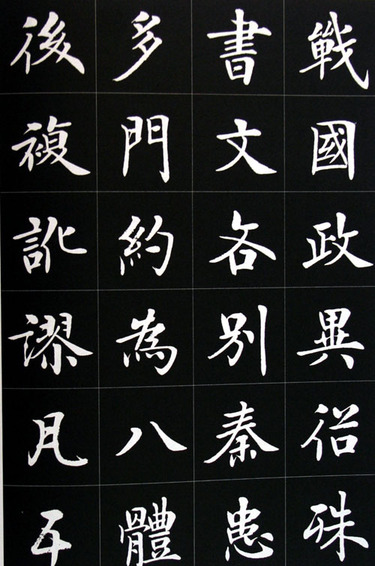 戰國政異俗殊
書文各別秦患
多門約為八體
後複訛謬凡五